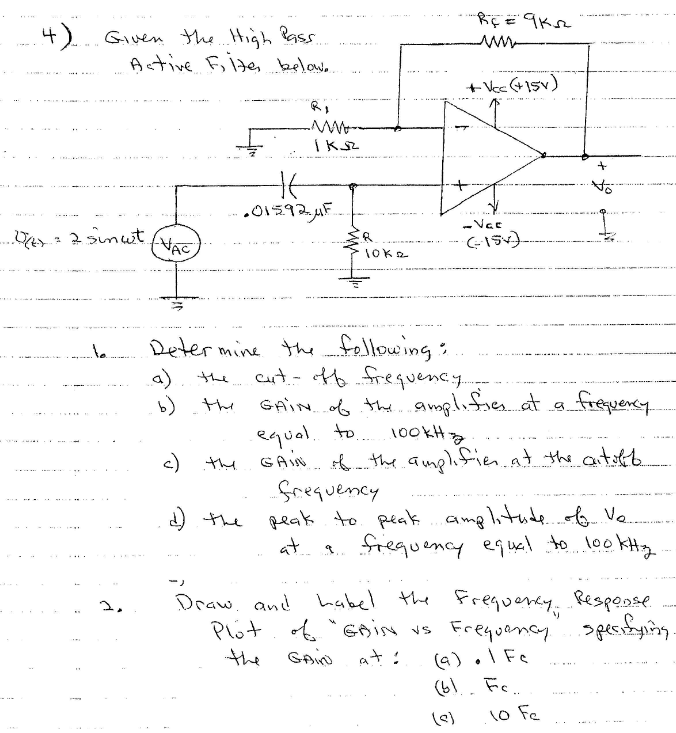 RF = 9KΩ
4) Given the High Pass
Active Filter below.
+Vcc (+15V)
R1
1KΩ
-
+
+
Vo
.01592 μF
-Vcc
(-15V)
V(t) = 2 sin ωt
VAC
R
10KΩ
1. Determine the following:
a) the cut-off frequency
b) the GAIN of the amplifier at a frequency
equal to 100kHz
c) the GAIN of the amplifier at the cutoff
frequency
d) the peak to peak amplitude of Vo
at a frequency equal to 100kHz
2. Draw and Label the Frequency Response
Plot of "GAIN vs Frequency" specifying
the GAIN at: (a) .1 Fc
(b) Fc
(c) 10 Fc